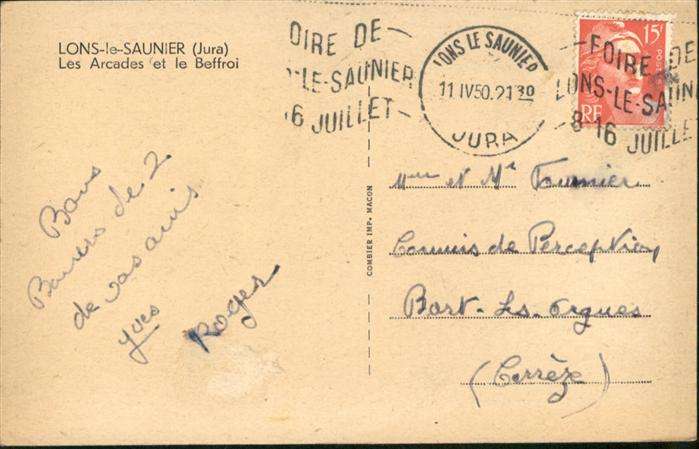 LONS-le-SAUNIER (Jura)
Les Arcades et le Beffroi
OIRE DE
-LE-SAUNIER
16 JUILLET
LONS LE SAUNIER
11 IV50.21 30
JURA
15F
POSTES
RF
FOIRE DE
LONS-LE-SAUN
8-16 JUILLE
COMBIER IMP. MACON
Bons
Baisers de 2
de vos amis
Yves
Roger
Mme et Mr Fournier
Commis de Perception
Bort-Les-Orgues
(Corrèze)